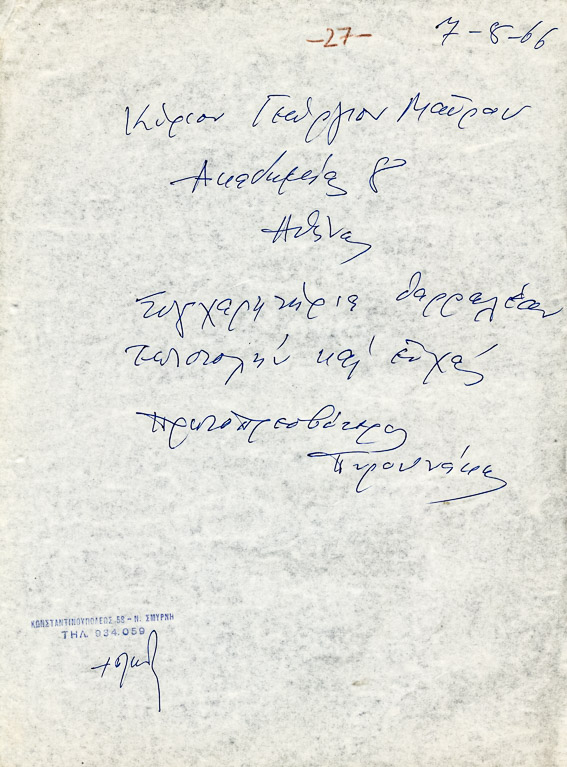 -27-
7-8-66
Κύριον Γεώργιον Μαύρον
Ακαδημείας 8
Αθήνας
Συγχαρητήρια θαρραλέαν
επιστολήν καί εὐχάς
Πρωτοπρεσβύτερος
ΚΩΝΣΤΑΝΤΙΝΟΥΠΟΛΕΩΣ 58 - Ν. ΣΜΥΡΝΗ
ΤΗΛ. 934.059